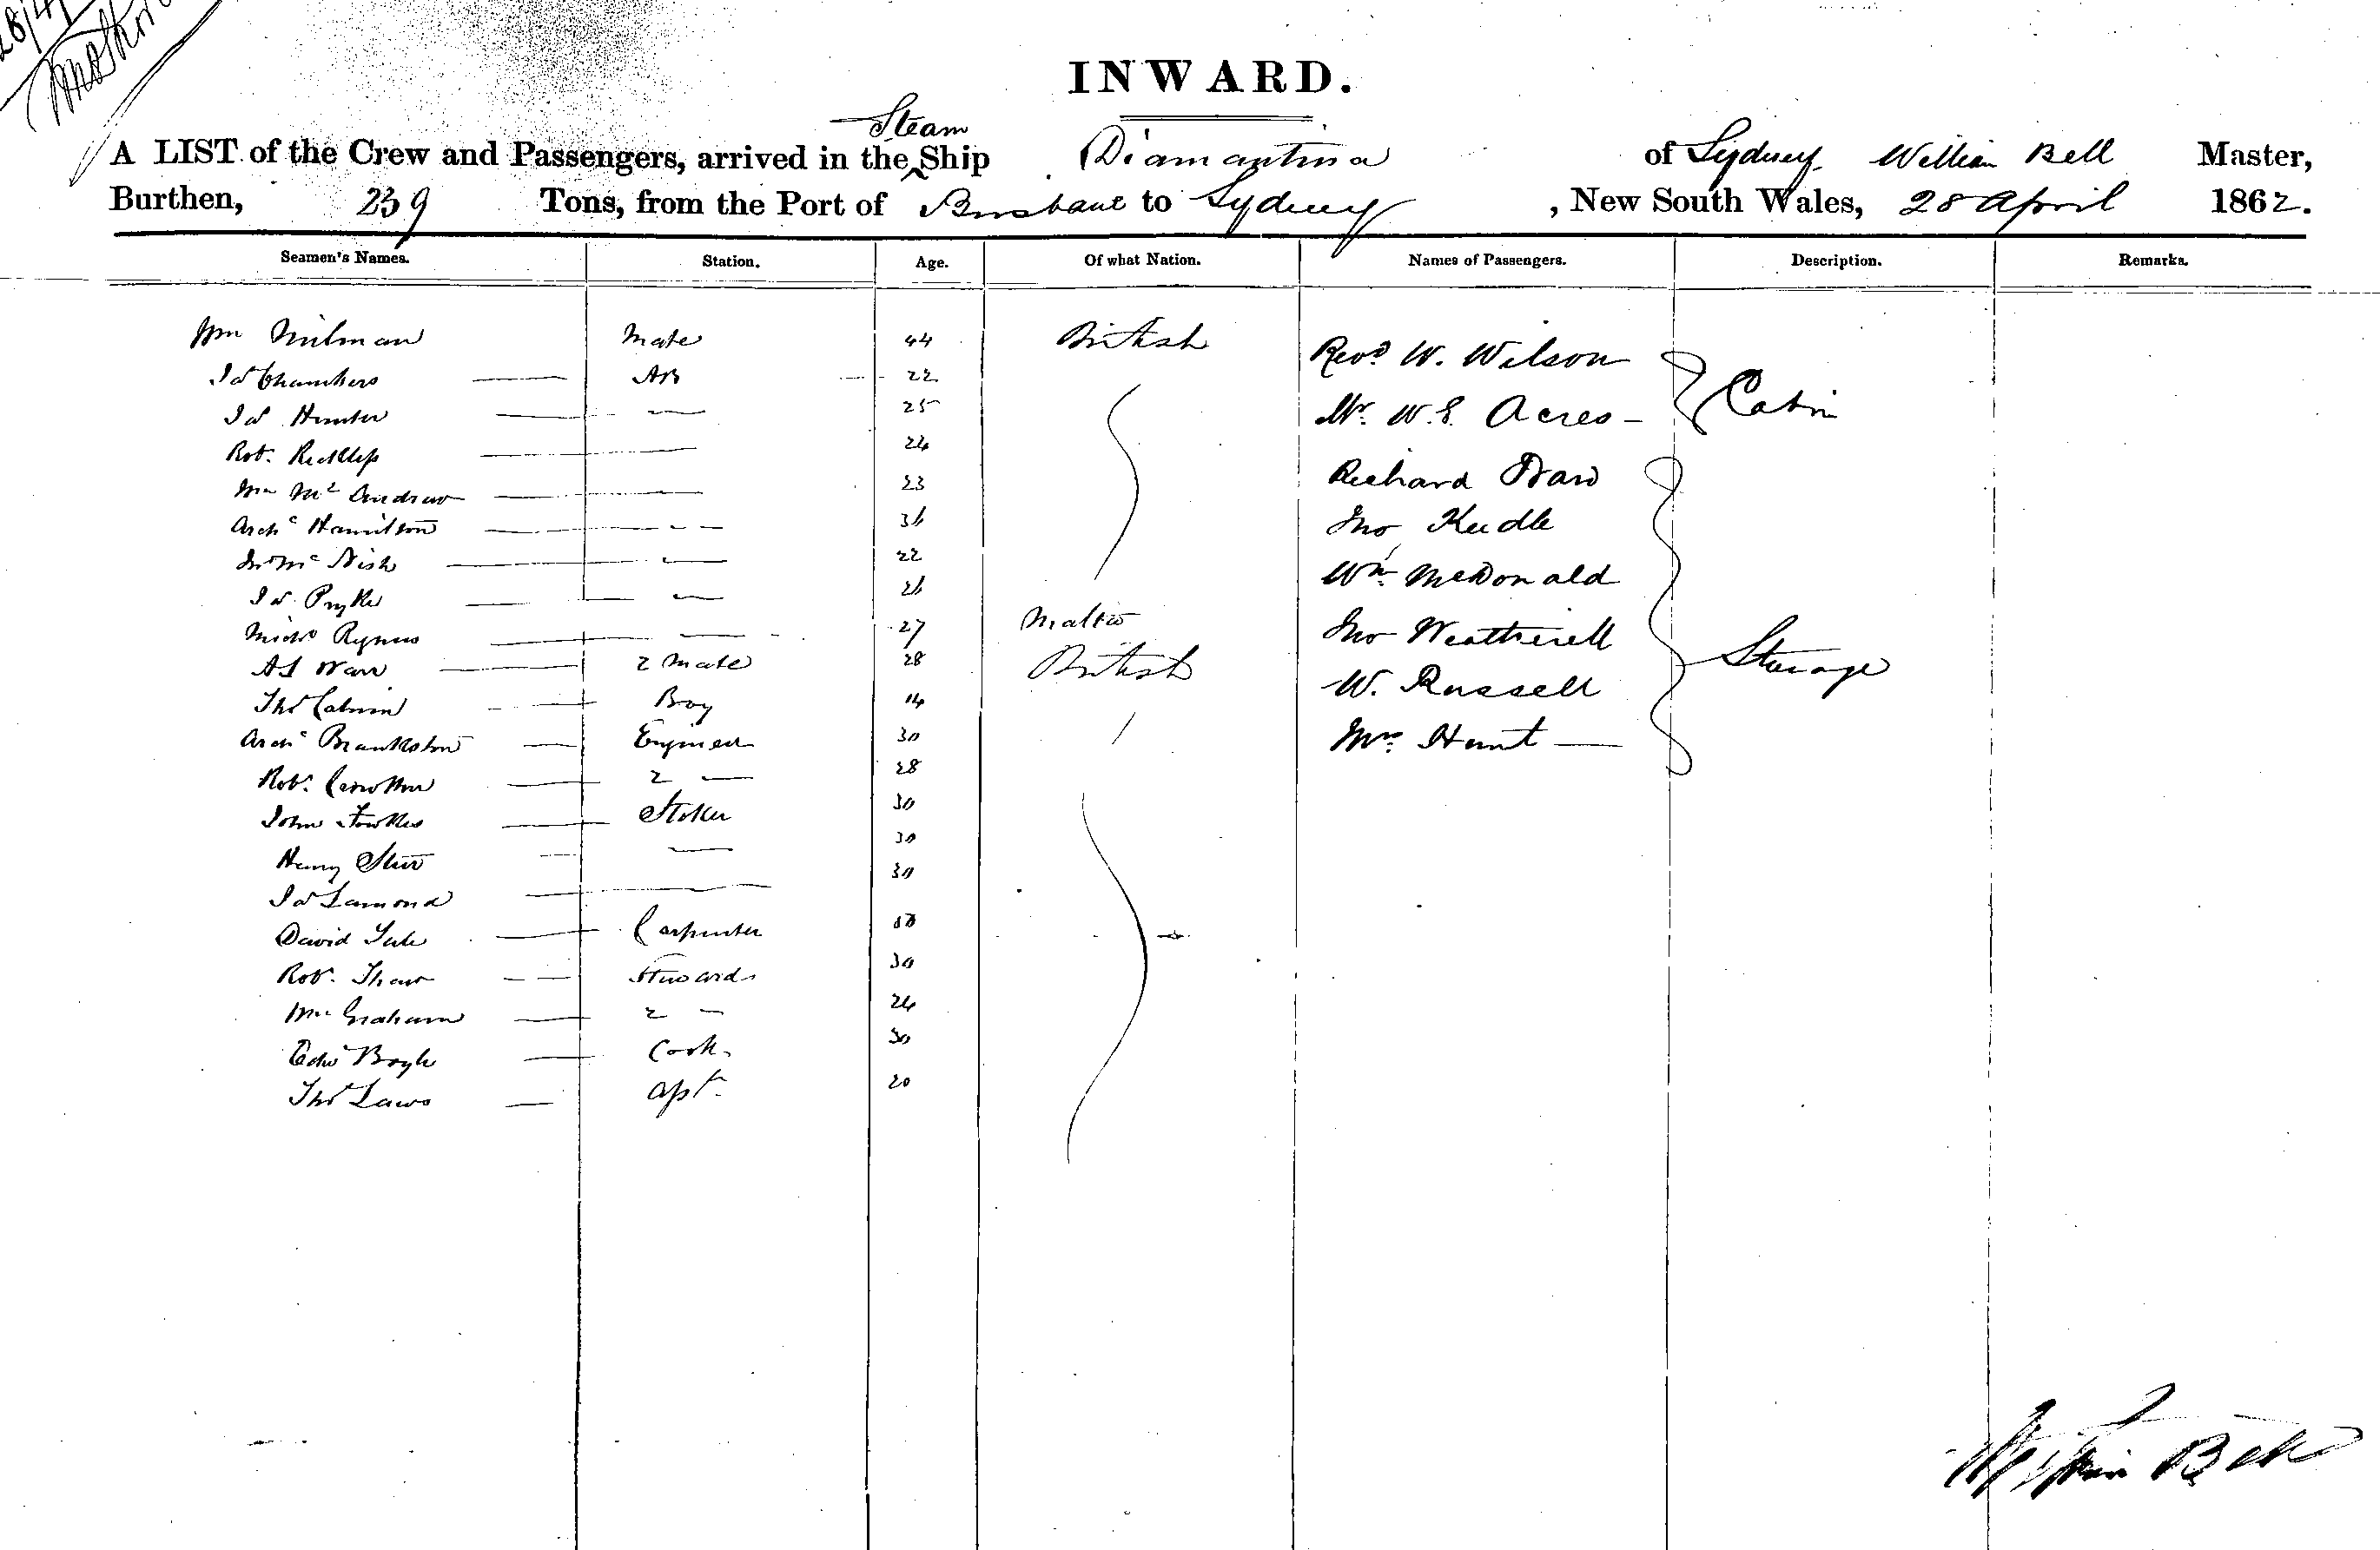 28/4
INWARD.
Steam
A LIST of the Crew and Passengers, arrived in the Ship Diamantina of Sydney William Bell Master,
Burthen, 239 Tons, from the Port of Brisbane to Sydney, New South Wales, 28 April 1862.
Seamen's Names. Station. Age. Of what Nation. Names of Passengers. Description. Remarks.
Wm Milman Mate 44 British Revd. W. Wilson
Js Chambers AB 22 Cabin
Js Hunter — 25 Mr. W.E. Acres —
Robt. — 24
Wm Mc Andrew — 23 Richard
Archd Hamilton — 36 Jno
Jn Mc Nish — 22 Wm McDonald
Js Pryke — 26
27 Maltese Jno Weatherell
2 Mate 28 British Steerage
Thos Boy 14 W. Russell
Archd Brankston Engineer 30 Mrs. Hunt —
Robt. Crowther 2 — 28
John Fowkes Stoker 30
Henry — 30
Js Lamond — 30
David Carpenter
Robt. Steward 30
Wm Graham 2 — 24
Edwd Boyle Cook. 30
Thos Laws Apt. 20
William Bell